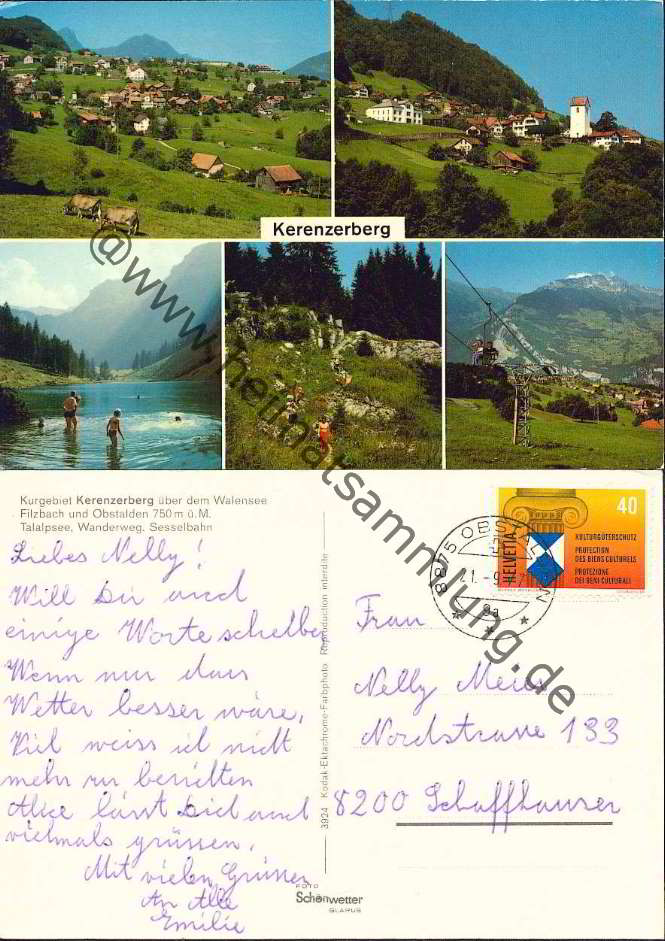 Kerenzerberg
@www.heimatsammlung.de
Kurgebiet Kerenzerberg über dem Walensee
Filzbach und Obstalden 750 m ü. M.
Talalpsee, Wanderweg, Sesselbahn
Liebes Nelly!
Will Dir auch
einige Worte
Wenn nur das
Wetter besser wäre,
Viel weiss ich nicht
mehr zu berichten
Alice lässt Dich auch
vielmals grüssen.
Mit vielen Grüssen
An Alle
Emilie
3924 Kodak-Ektachrome-Farbphoto Reproduction interdite
FOTO
Schönwetter
GLARUS
8875 OBSTALDEN
40
HELVETIA
KULTURGÜTERSCHUTZ
PROTECTION
DES BIENS CULTURELS
PROTEZIONE
DEI BENI CULTURALI
Frau
Nelly Meier
Nordstrasse 133
8200 Schaffhausen